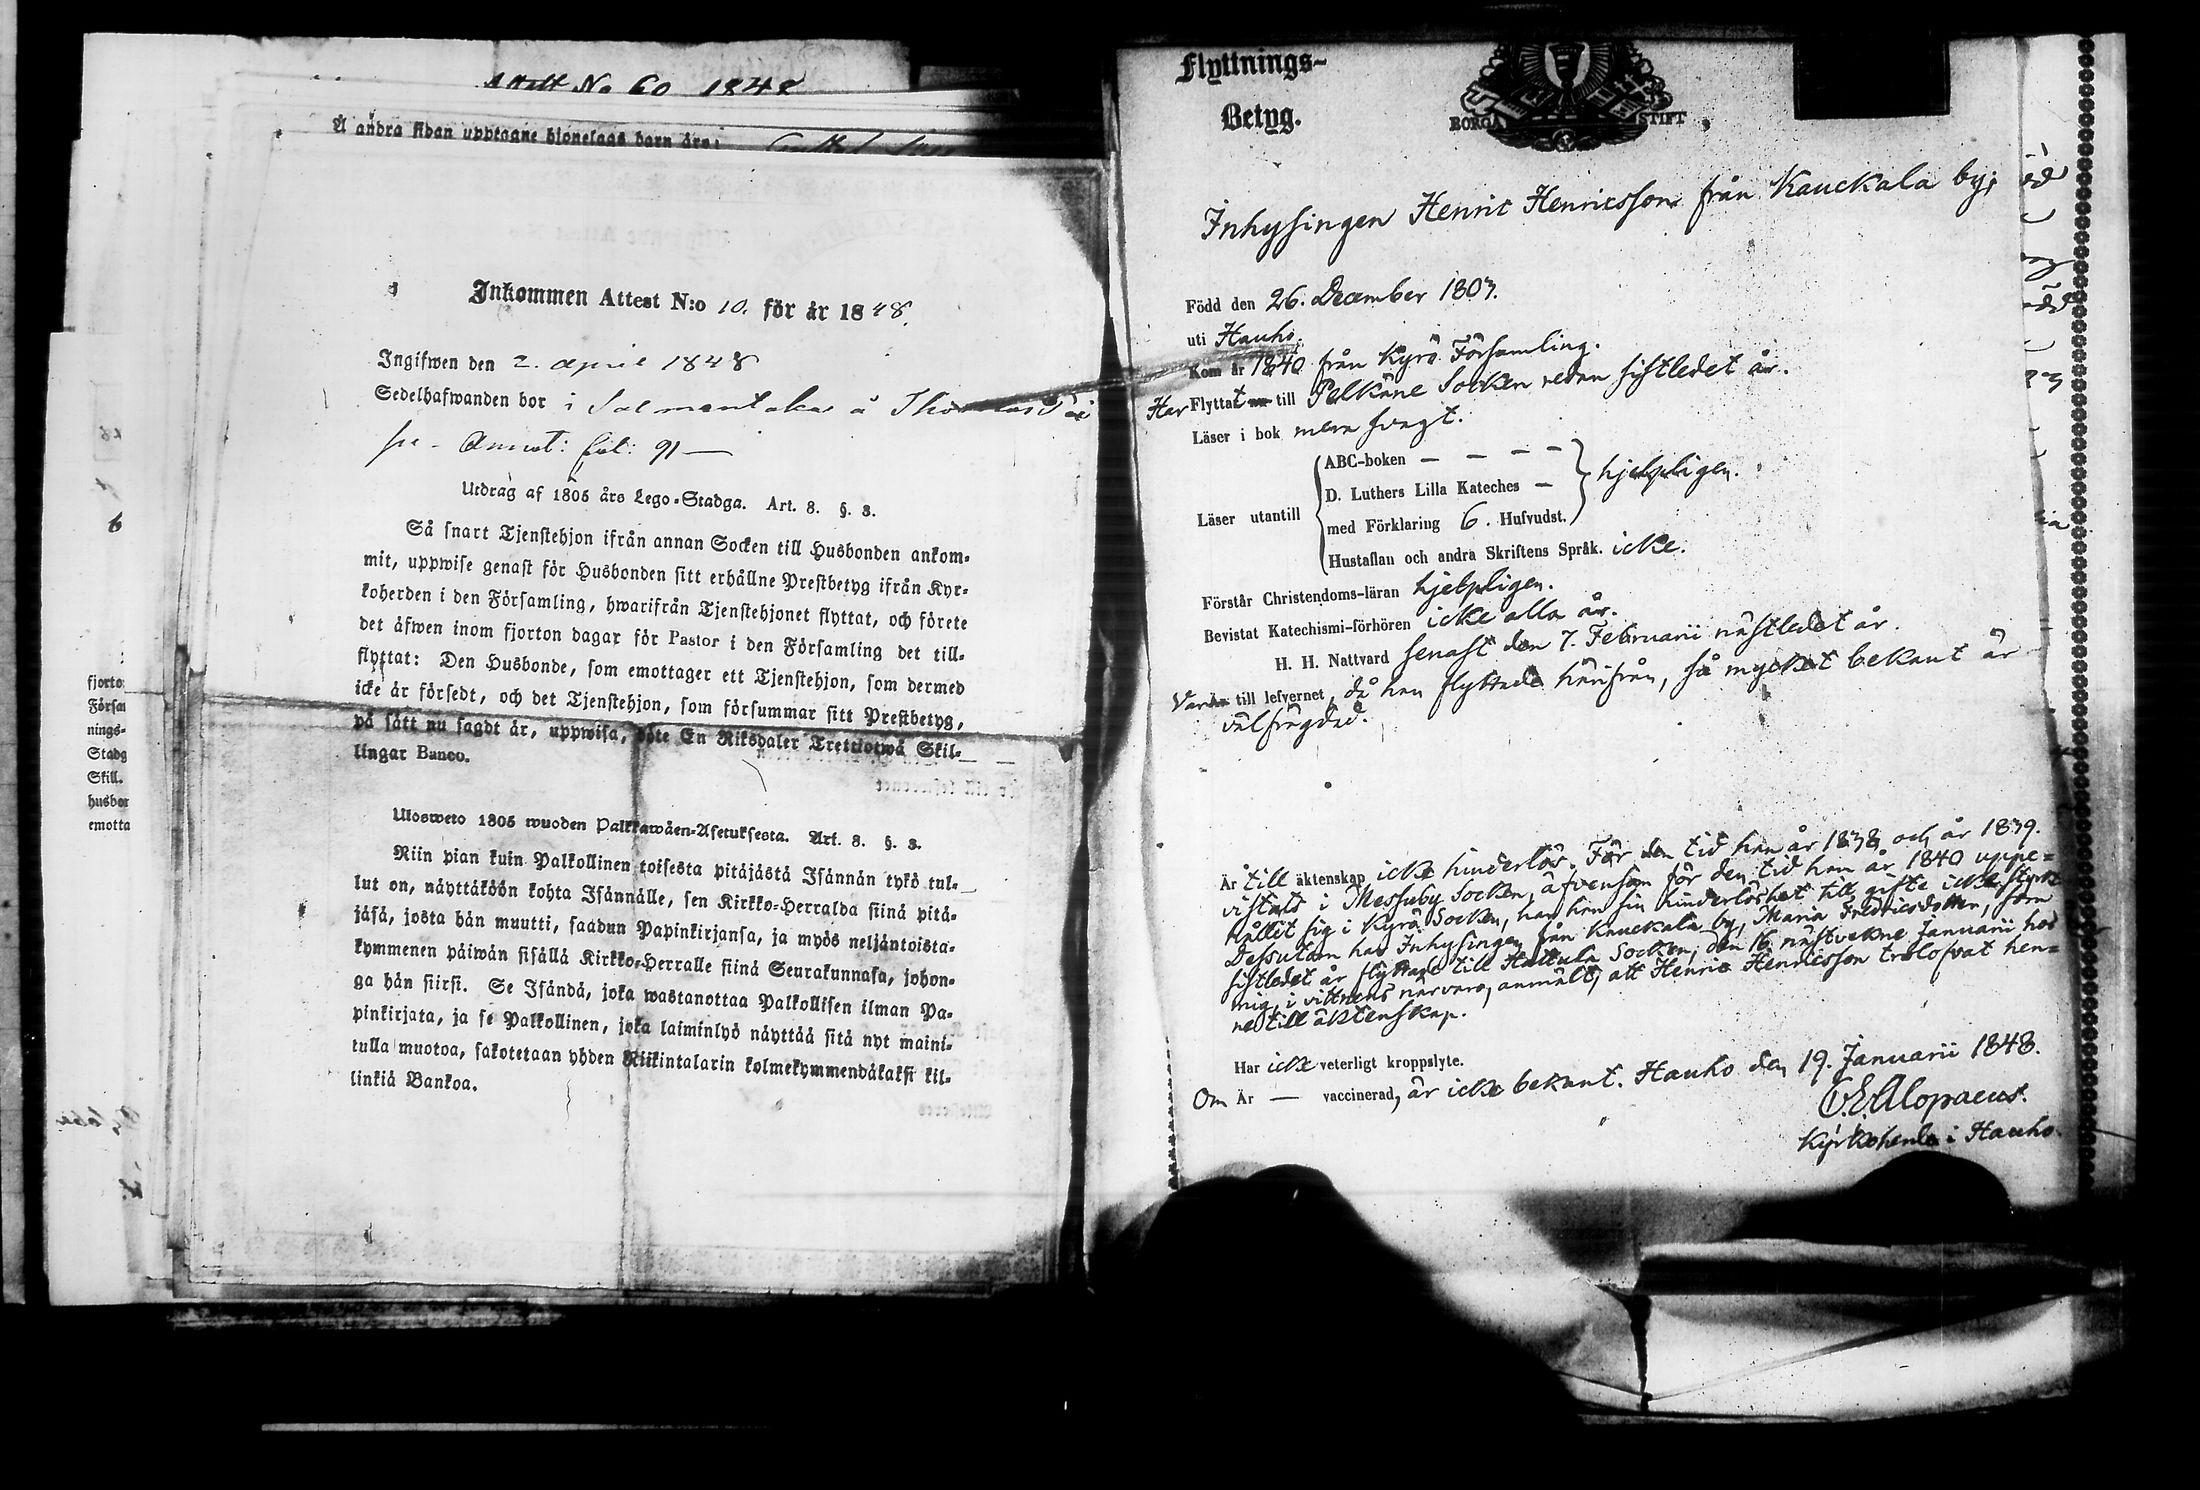 Attest No 60 1848
Å andra sidan upptagne hjonelags barn äro:
Inkommen Attest N:o 10. för år 1848.
Ingifwen den 2. April 1848
Sedelhafwanden bor i Salmentaka å
Annot: fol: 91 —
Utdrag af 1805 års Lego-Stadga. Art. 8. §. 3.
Så snart Tjenstehjon ifrån annan Socken till Husbonden ankom-
mit, uppwise genast för Husbonden sitt erhållne Prestbetyg ifrån Kyr-
koherden i den Församling, hwarifrån Tjenstehjonet flyttat, och förete
det äfwen inom fjorton dagar för Pastor i den Församling det till-
flyttat: Den Husbonde, som emottager ett Tjenstehjon, som dermed
icke är försedt, och det Tjenstehjon, som försummar sitt Prestbetyg,
på sätt nu sagdt är, uppwisa, böte En Riksdaler Trettiotwå Skil-
lingar Banco.
Ulosweto 1805 wuoden Palkkawäen-Asetuksesta. Art. 8. §. 3.
Niin pian kuin Palkollinen toisesta pitäjästä Isännän tykö tul-
lut on, näyttäköön kohta Isännälle, sen Kirkko-Herralda siinä pitä-
jäsä, josta hän muutti, saadun Papinkirjansa, ja myös neljäntoista-
kymmenen päiwän sisällä Kirkko-Herralle siinä Seurakunnasa, johon-
ga hän siirsi. Se Isändä, joka wastanottaa Palkollisen ilman Pa-
pinkirjata, ja se Palkollinen, joka laiminlyö näyttää sitä nyt maini-
tulla muotoa, sakotetaan yhden Riikintalarin kolmekymmendäkaksi kil-
linkiä Bankoa.
fjorto
Försa
nings-
Stadg
Skill.
husbon
emotta
Flyttnings-
Betyg.
BORGÅ STIFT
Inhysingen Henric Henricsson från Kauckala by;
Född den 26. December 1807.
uti Hauho.
Kom år 1840 från Kyrö Församling.
Har Flyttat till Pelkäne Socken redan sistledet år.
Läser i bok mera svagt.
ABC-boken — — — —
D. Luthers Lilla Kateches — hjelpligen.
Läser utantill
med Förklaring 6. Hufvudst.
Hustaflan och andra Skriftens Språk. icke.
Förstår Christendoms-läran hjelpligen.
Bevistat Katechismi-förhören icke alla år.
H. H. Nattvard senast den 7. Februarii nästledet år.
Var till lefvernet, då han flyttade härifrån, så mycket bekant är
välfrägdad.
Är till äktenskap icke hinderlös. För den tid han år 1838 och år 1839.
vistats i Messuby Socken, äfvensom för den tid han år 1840 uppe-
hållit sig i Kyrö Socken, har han sin hinderlöshet till gifte icke styrkt
Dessutom har Inhysingen från Kauckala by, Maria Fredricsdotter, som
sistledet år flyttade till Hattula Socken, den 16 nästvekne Januarii hos
mig, i vittnens närvaro, anmält, att Henric Henricsson trolofvat hen-
ne till äktenskap.
Har icke veterligt kroppslyte.
Om Är — vaccinerad, är icke bekant. Hauho den 19. Januarii 1848.
Alopaeus.
Kyrkoherde i Hauho.